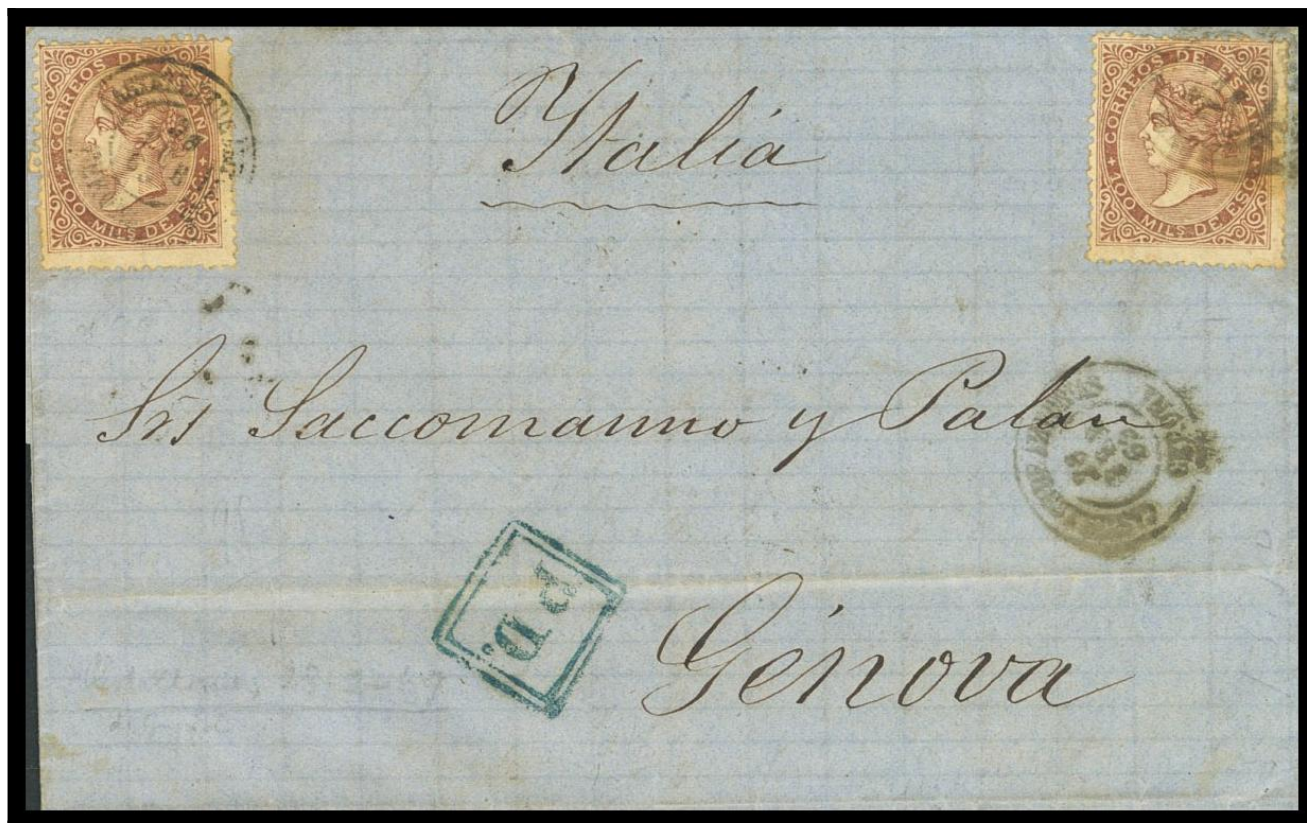 CORREOS DE ESPAÑ
100 MILS DE ESC
Italia
CORREOS DE ESPAÑ
100 MILS DE ESC
Srs Saccomanno y Palau
P.D.
Génova